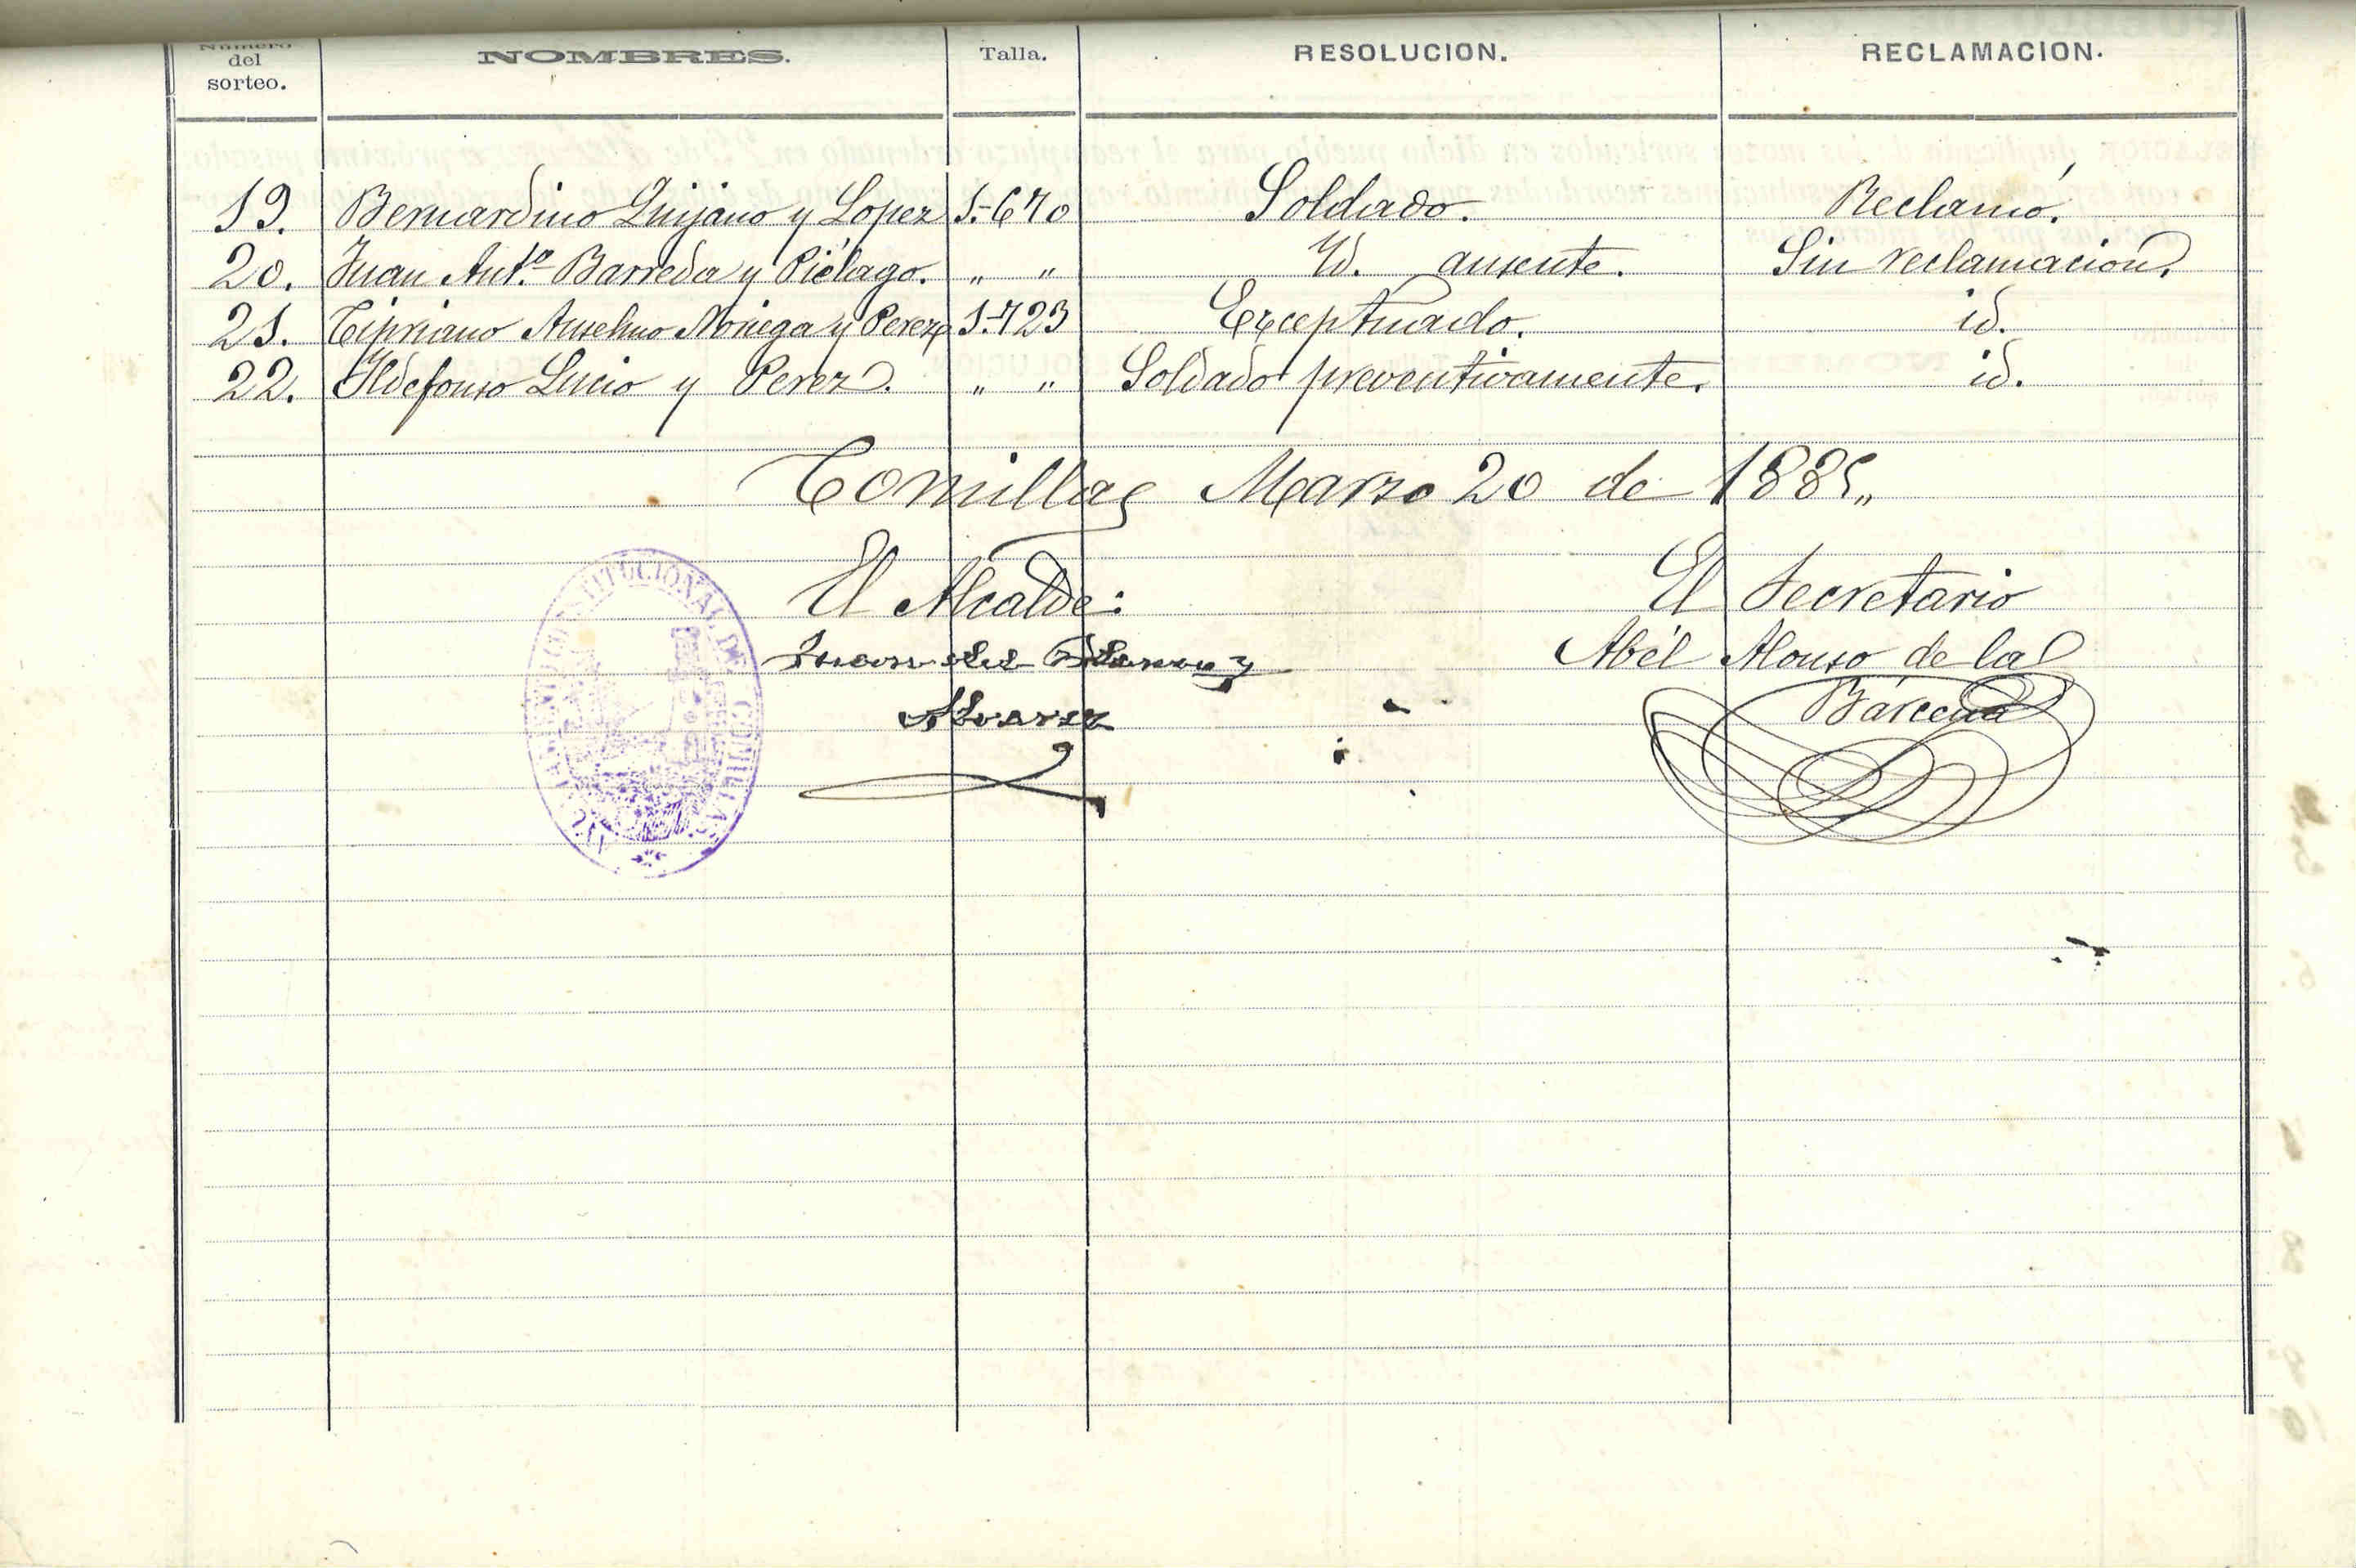 Número del sorteo. NOMBRES. Talla. RESOLUCION. RECLAMACION.
19. Bernardino Quijano y Lopez 1.-670 Soldado. Reclamó.
20. Juan Antº. Barreda y Piélago. „ „ Id. ausente. Sin reclamación.
21. Cipriano Anselmo Noriega y Perez 1.-723 Exceptuado. id.
22. Ildefonso Lucio y Perez. „ „ Soldado preventivamente. id.
Comillas Marzo 20 de 1885„
El Alcalde: El Secretario
Juan del Abél Alonso de la
Alvarez Bárcena
CONSTITUCIONAL DE COMILLAS